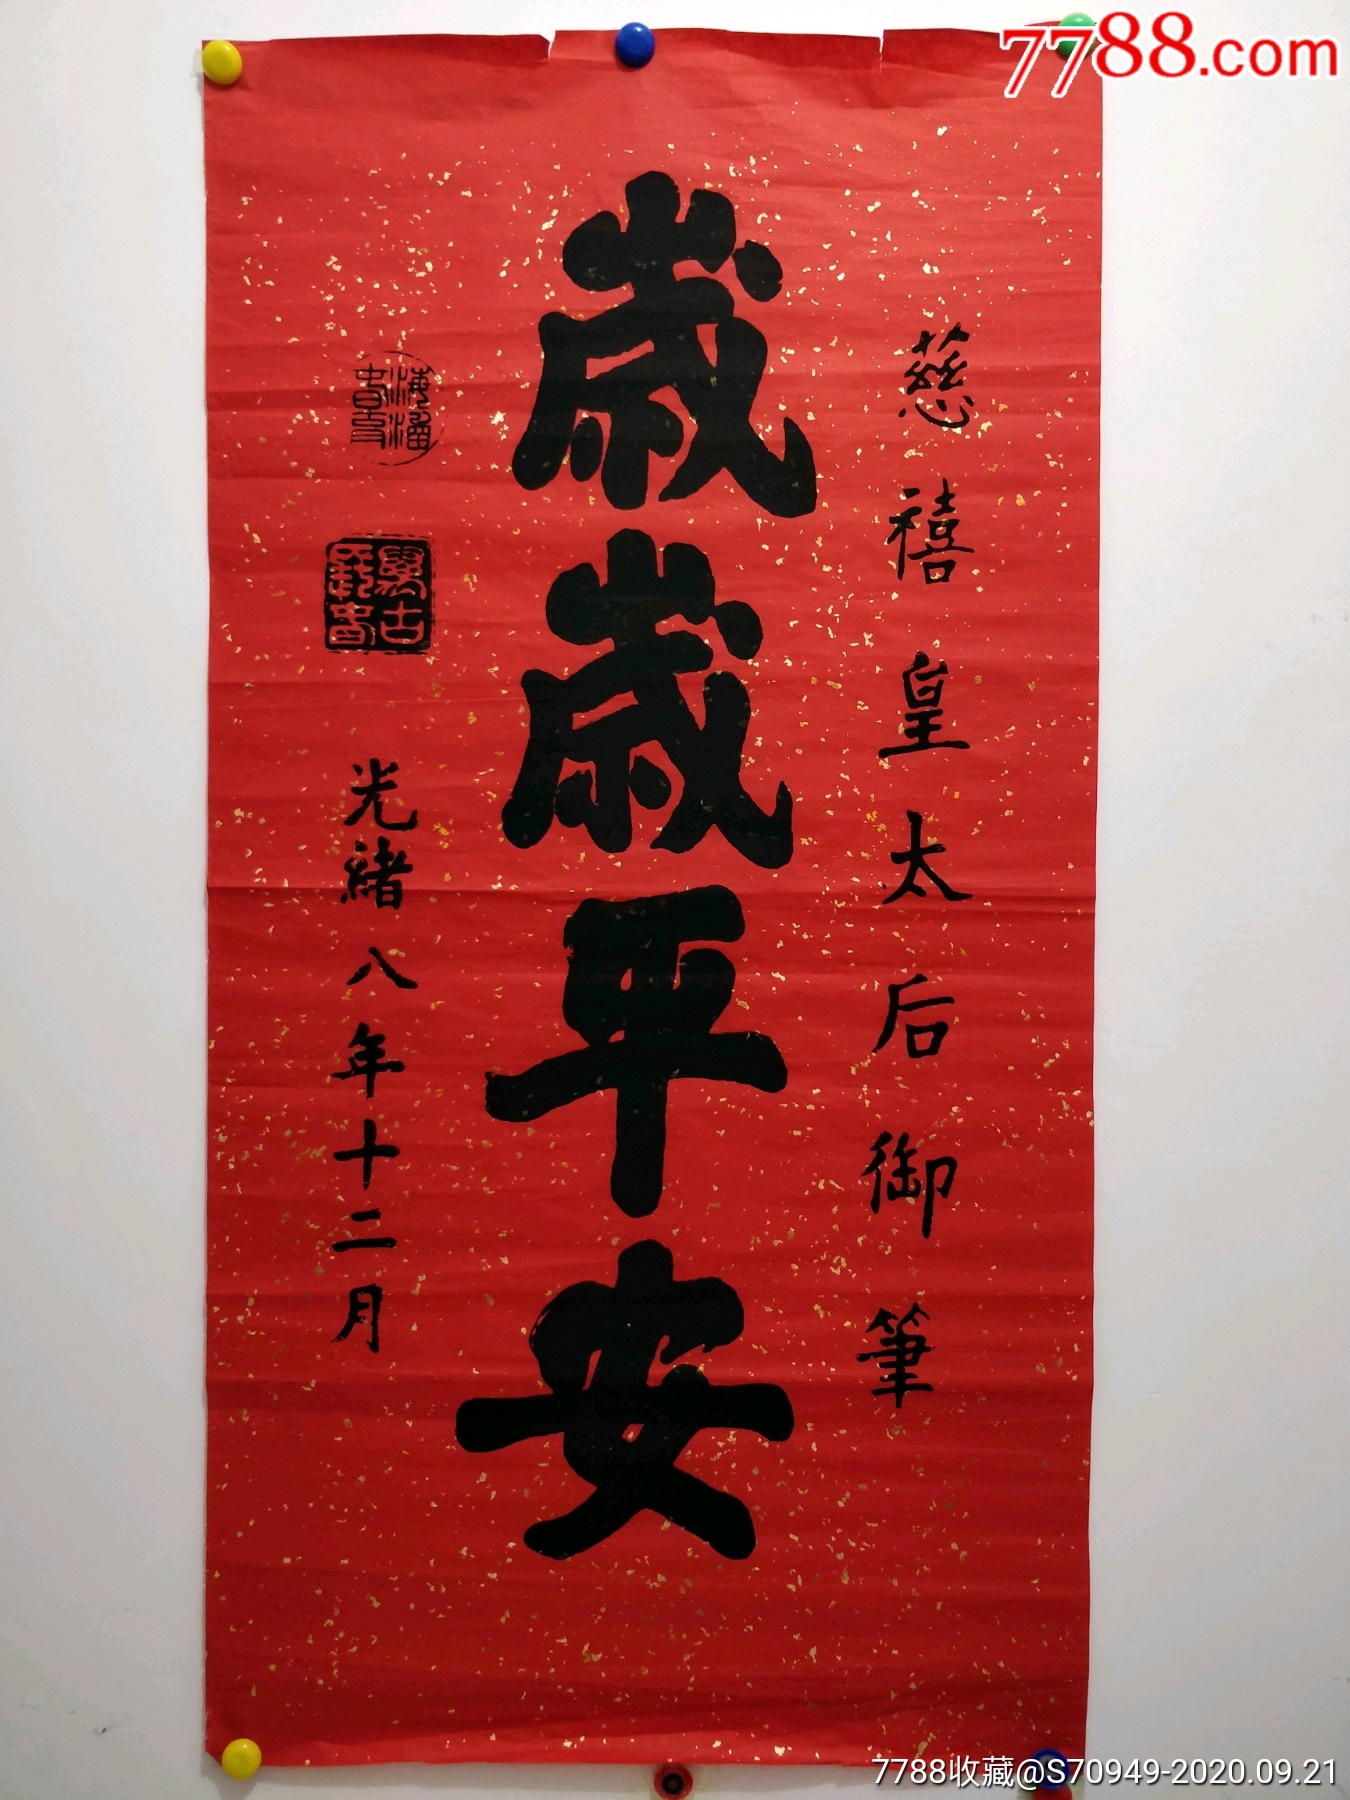 7788.com
慈禧皇太后御筆
歲歲平安
光緒八年十二月
7788收藏@S70949-2020.09.21